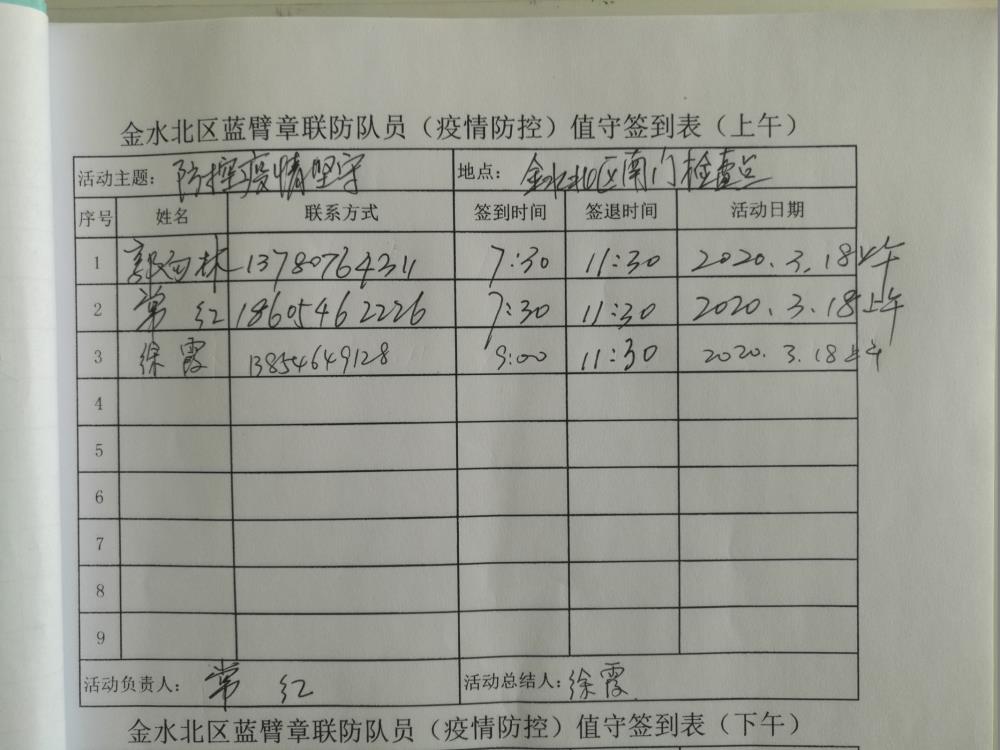 金水北区蓝臂章联防队员（疫情防控）值守签到表（上午）
活动主题： 防控疫情坚守 地点： 金水北区南门检查点
序号 姓名 联系方式 签到时间 签退时间 活动日期
1 郭向林 13780764311 7:30 11:30 2020.3.18上午
2 常红 18605462226 7:30 11:30 2020.3.18上午
3 徐霞 13854649128 9:00 11:30 2020.3.18上午
4
5
6
7
8
9
活动负责人： 常红 活动总结人： 徐霞
金水北区蓝臂章联防队员（疫情防控）值守签到表（下午）